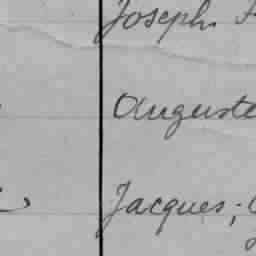 Joseph.
Auguste
Jacques;